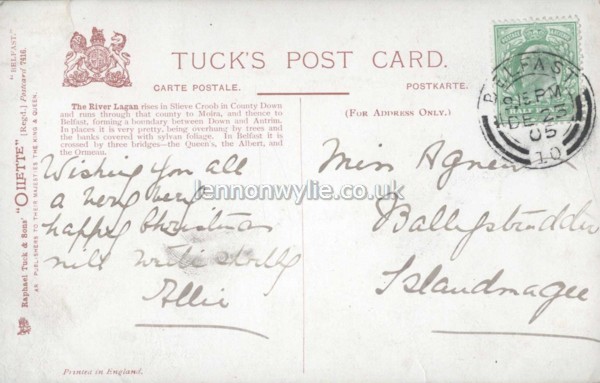 TUCK'S POST CARD.
CARTE POSTALE.
POSTKARTE.
The River Lagan rises in Slieve Croob in County Down
and runs through that county to Moira, and thence to
Belfast, forming a boundary between Down and Antrim.
In places it is very pretty, being overhung by trees and
the banks covered with sylvan foliage. In Belfast it is
crossed by three bridges—the Queen's, the Albert, and
the Ormeau.
(FOR ADDRESS ONLY.)
Wishing you all
a very very
happy Christmas
will write shortly
Allie
Miss Agnew
Ballystrudder
Islandmagee
BELFAST
PM
DE
05
10
HALF
lennonwylie.co.uk
"BELFAST."
Raphael Tuck & Sons' "OILETTE" [Regd.] Postcard 7416.
ART PUBLISHERS TO THEIR MAJESTIES THE KING & QUEEN.
Printed in England.